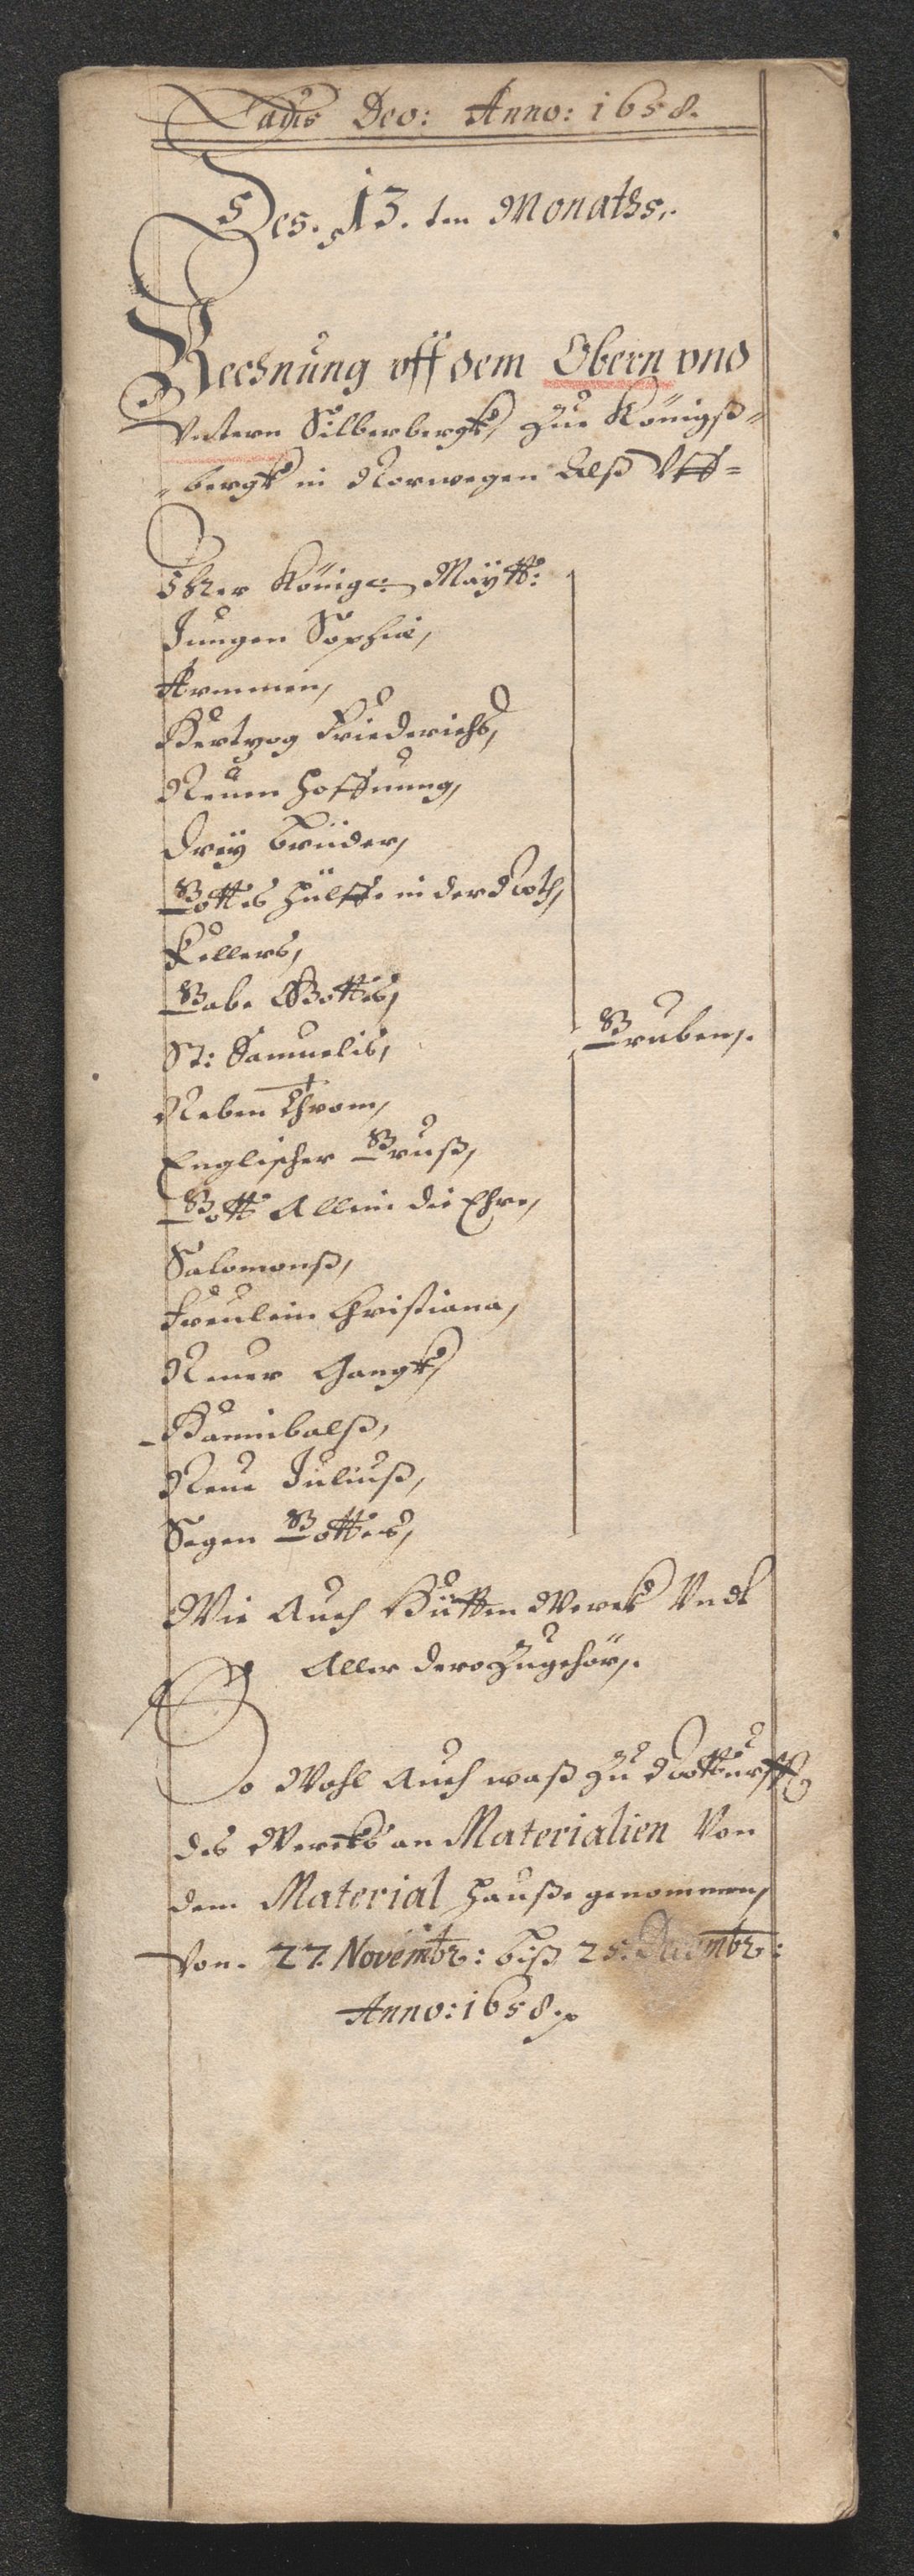 Laus Deo: Anno: 1658.
Des. 13.ten Monaths,.
Rechnung vff dem Obern vnd
Vntern Silberbergk, zue Königß=
=bergk in Norwegen Alß Vff=
Ihrer Königl: Maÿtt:
Jungen Sophiæ,
Armmen,
Hertzog Friederichs,
Neuen Hoffnung,
Dreÿ Brüder,
Gottes Hülffe in der Noth,
Kellers,
Gabe Gottes,
St: Samuelis,
Gruben,.
Neben Throm,
Englischer Gruß,
Gott Allein die Ehre,
Salomonß,
Freulein Christiana,
Neuer Gangk,
Hannibalß,
Neue Juliuß,
Segen Gottes,
Wie Auch Hütten Werck Undt
Aller dero Zugehör,.
So Wohl Auch waß zu Nottürfft
des Wercks an Materialien Von
dem Material Hauße genommen,
Von. 27. Novembr: biß 25. Decembr:
Anno: 1658.